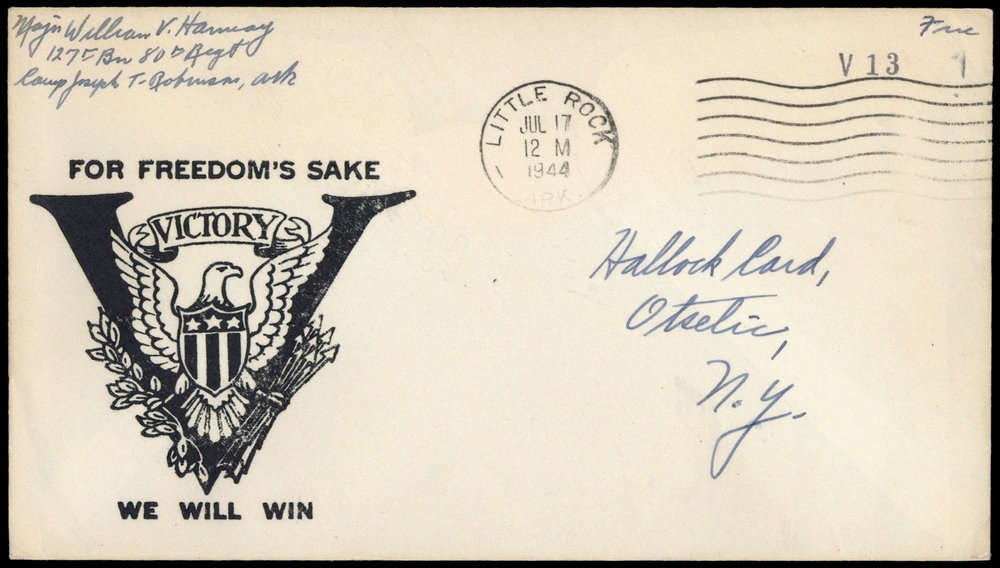 Major William V. Hannay
127th Bn 80th Regt
Camp Joseph T. Robinson, Ark
Free
V 13
1
LITTLE ROCK
JUL 17
12 M
1944
ARK.
FOR FREEDOM'S SAKE
VICTORY
WE WILL WIN
Hallock Card,
Otselic,
N.Y.